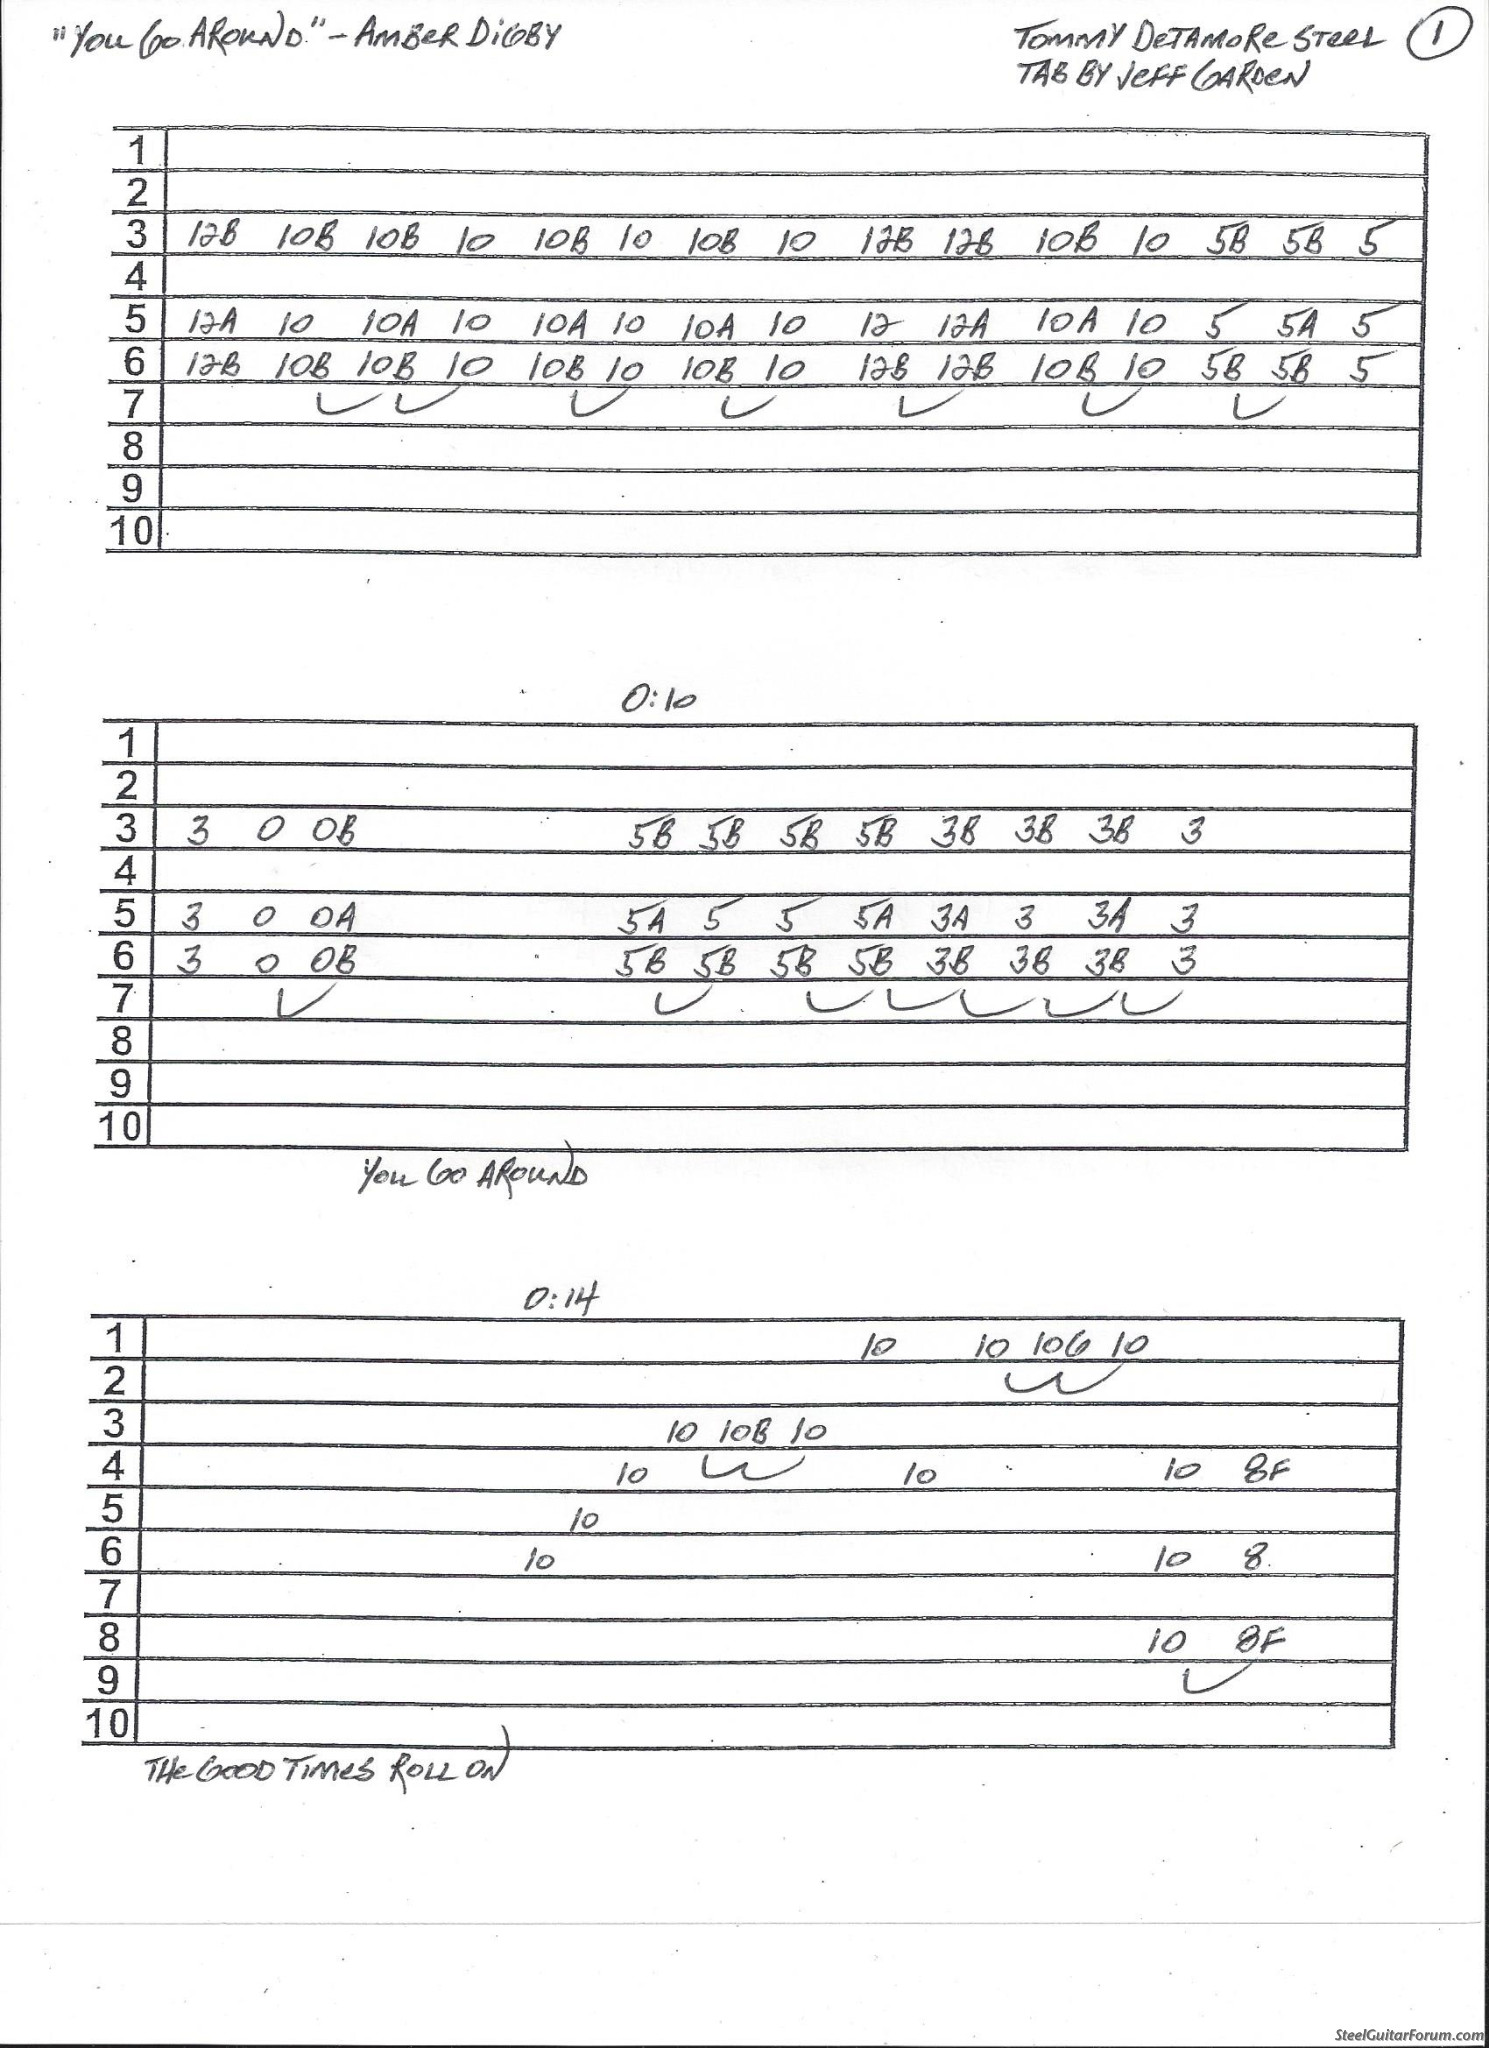 "You Go Around" - Amber Digby
Tommy Detamore Steel 1
Tab by Jeff Garden
1
2
3 12B 10B 10B 10 10B 10 10B 10 12B 12B 10B 10 5B 5B 5
4
5 12A 10 10A 10 10A 10 10A 10 12 12A 10A 10 5 5A 5
6 12B 10B 10B 10 10B 10 10B 10 12B 12B 10B 10 5B 5B 5
7
8
9
10
0:10
1
2
3 3 0 0B 5B 5B 5B 5B 3B 3B 3B 3
4
5 3 0 0A 5A 5 5 5A 3A 3 3A 3
6 3 0 0B 5B 5B 5B 5B 3B 3B 3B 3
7
8
9
10
You Go Around)
0:14
1 10 10 10G 10
2
3 10 10B 10
4 10 10 10 8F
5 10
6 10 10 8
7
8 10 8F
9
10
The Good Times Roll On)
SteelGuitarForum.com